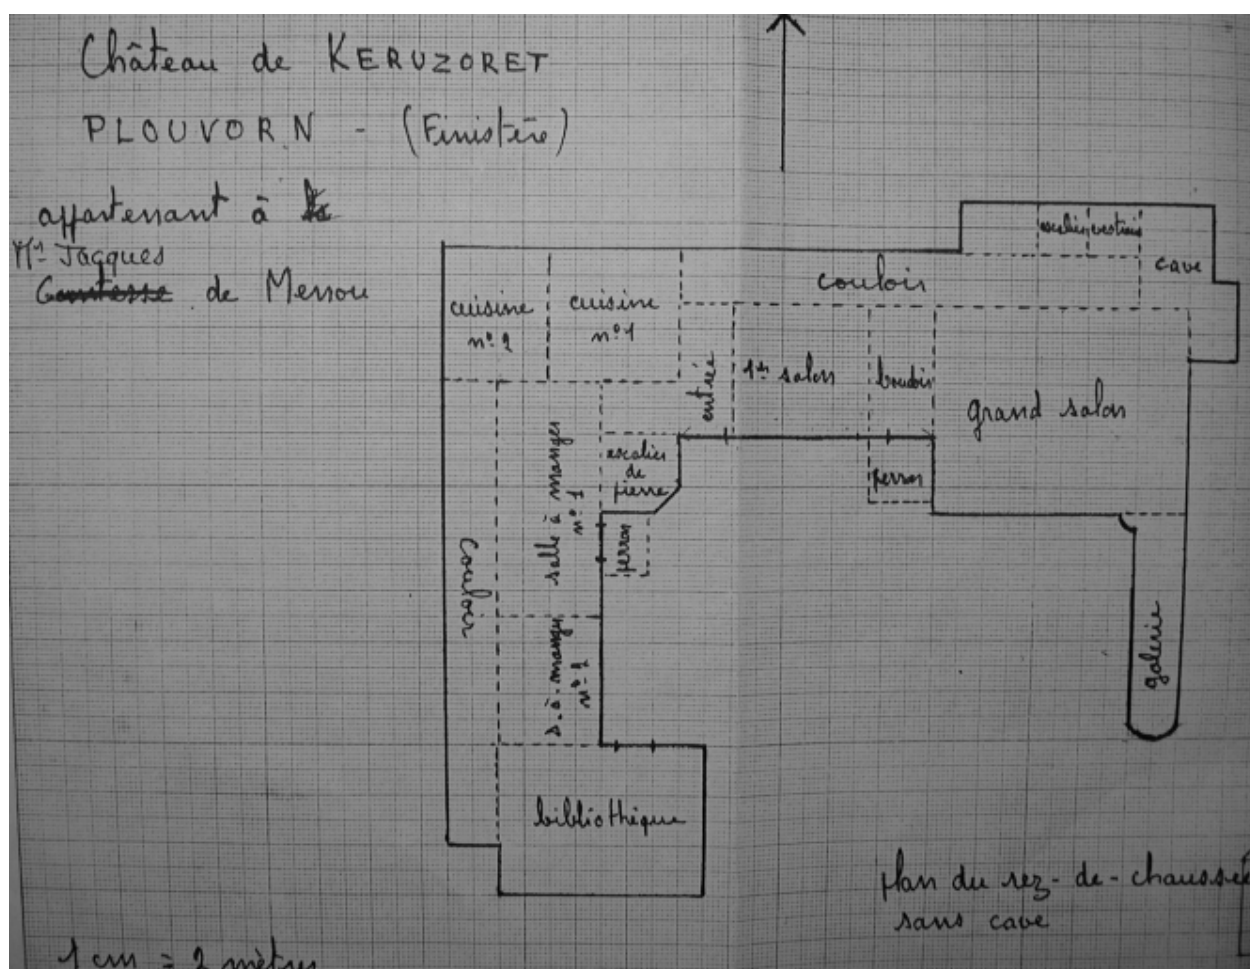 Château de KERUZORET
PLOUVORN - (Finistère)
appartenant à la
Mr Jacques
Comtesse de Menou
escalier
vestiaire
cave
couloir
cuisine
n° 2
cuisine
n° 1
entrée
1er salon
boudoir
grand salon
escalier
de
pierre
perron
salle à manger
n° 1
perron
couloir
s. à. manger
n° 2
galerie
bibliothèque
plan du rez-de-chaussée
sans cave
1 cm = 2 mètres